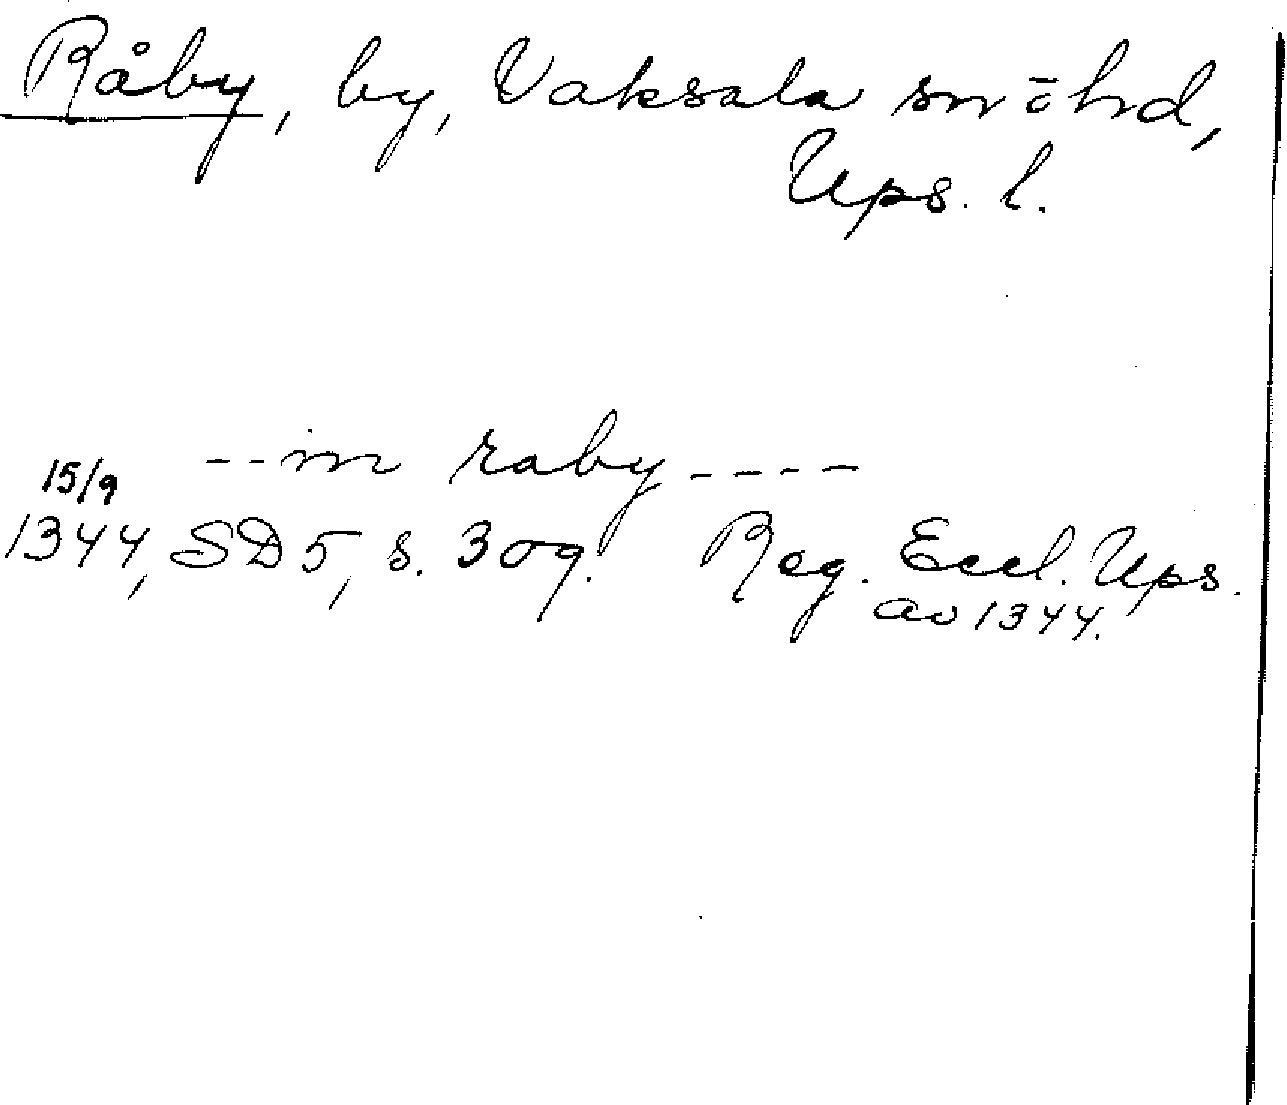 Råby, by, Vaksala sn o hd,
Ups. l.
--in raby----
15/9
1344, SD 5, s. 309. Reg. Eccl. Ups.
av 1344.